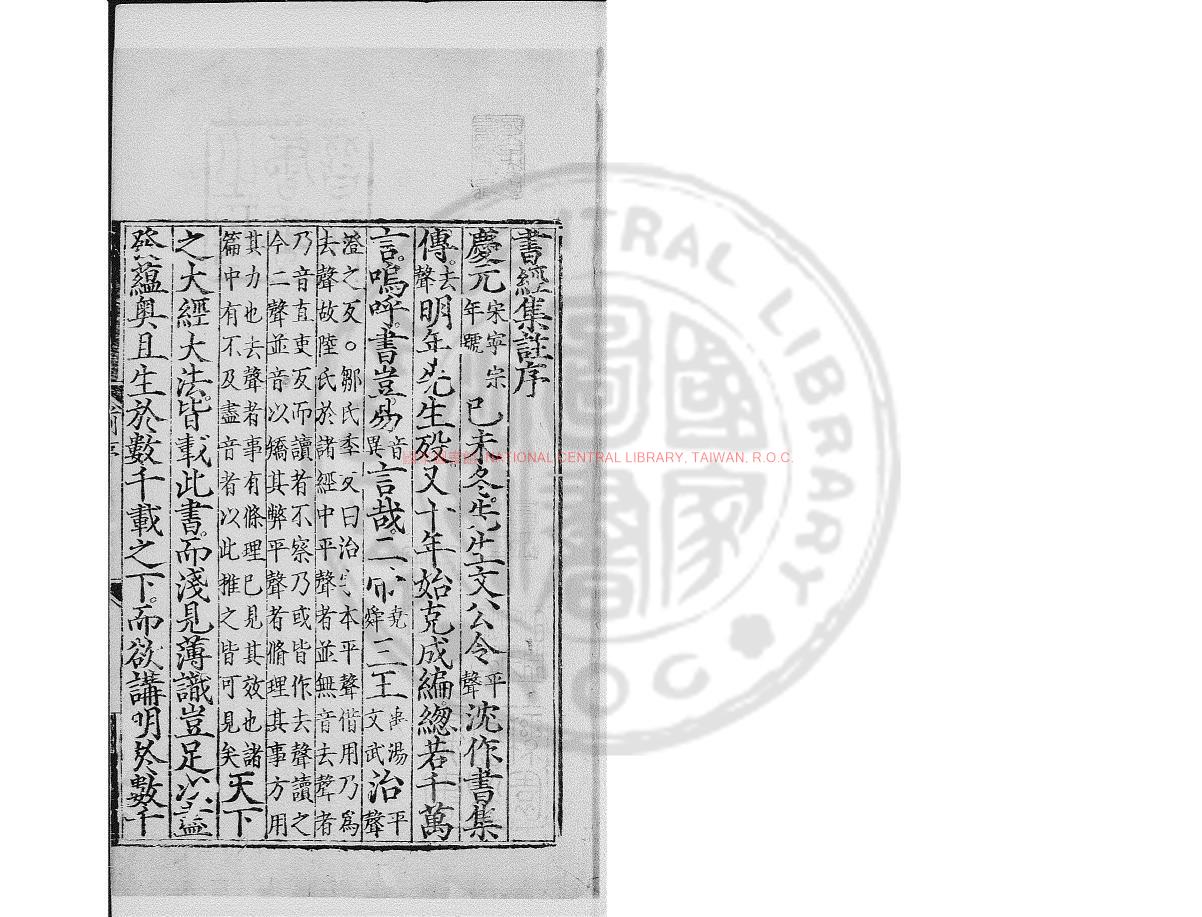 書經集註序
慶元宋寧宗年號己未冬先生文公令平聲沈作書集
傳去聲明年先生歿又十年始克成編總若干萬
言嗚呼書豈易音異言哉二帝堯舜三王禹湯文武治平聲
澄之反○鄒氏季友曰治字本平聲借用乃為
去聲故陸氏於諸經中平聲者並無音去聲者
乃音直吏反而讀者不察乃或皆作去聲讀之
今二聲並音以矯其弊平聲者脩理其事方用
其力也去聲者事有條理已見其效也諸
篇中有不及盡音者以此推之皆可見矣天下
之大經大法皆載此書而淺見薄識豈足以盡
發蘊奧且生於數千載之下而欲講明於數千
前序
國家圖書館 NATIONAL CENTRAL LIBRARY, TAIWAN, R.O.C.